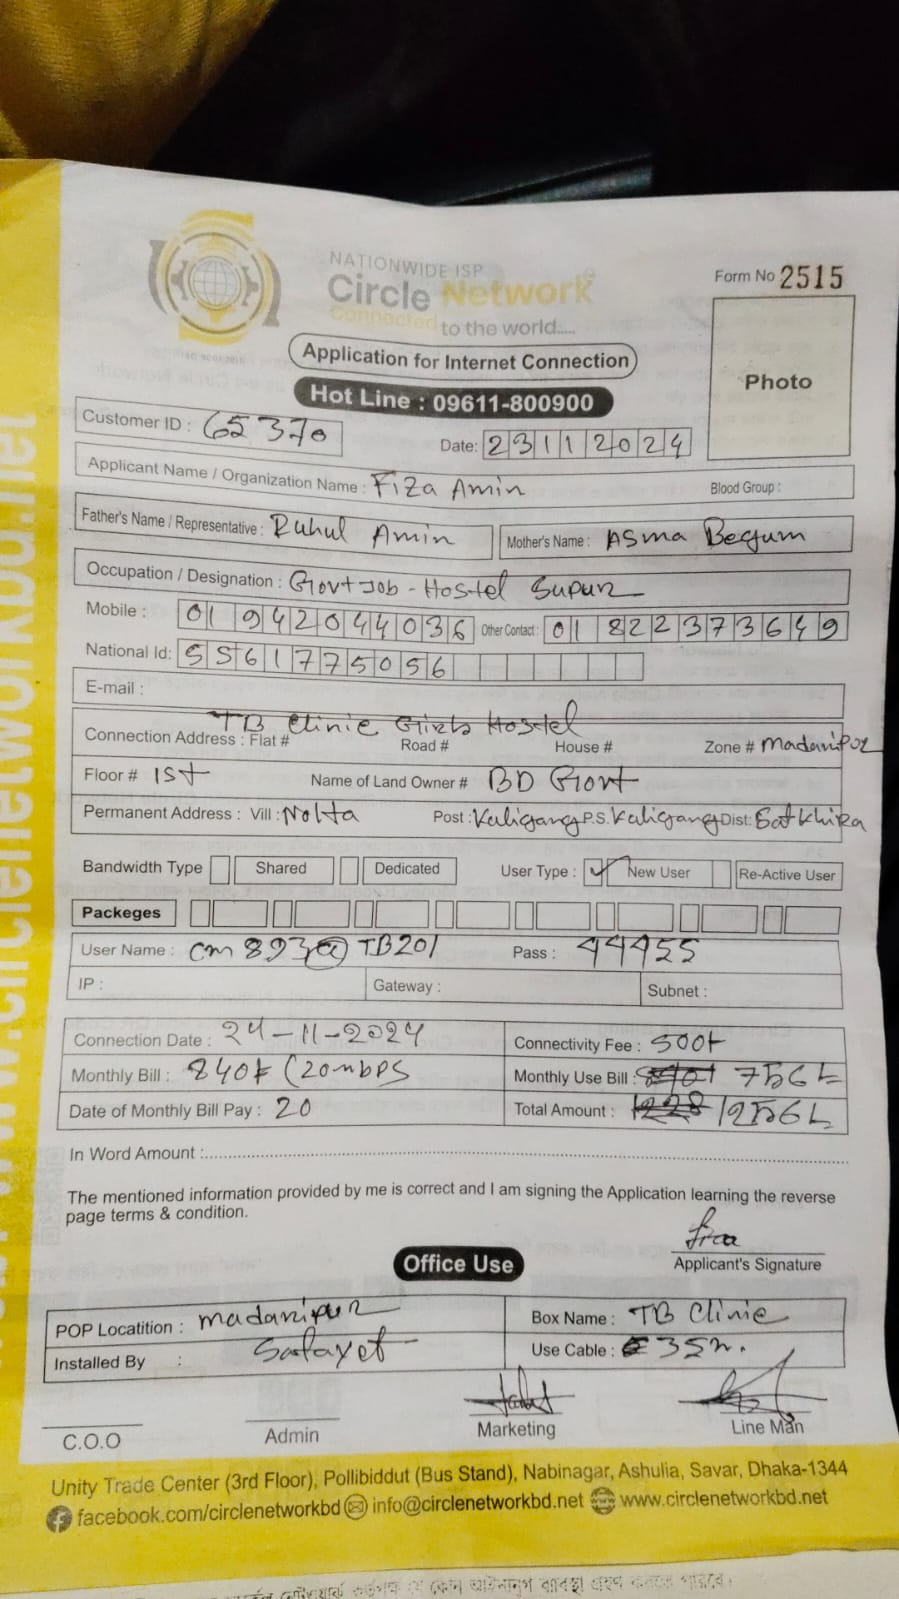 www.circlenetworkbd.net
NATIONWIDE ISP
Circle Network
Connected to the world.....
Form No 2515
Photo
Application for Internet Connection
Hot Line : 09611-800900
Customer ID : 65370
Date: 23112024
Applicant Name / Organization Name : Fiza Amin
Blood Group :
Father's Name / Representative : Ruhul Amin
Mother's Name : Asma Begum
Occupation / Designation : Govt Job - Hostel Super
Mobile : 01942044036 Other Contact : 01822373649
National Id: 5561775056
E-mail :
TB Clinic Girls Hostel
Connection Address : Flat # Road # House # Zone # madaripor
Floor # 1st Name of Land Owner # BD Govt
Permanent Address : Vill : Nolta Post : Kaligang P.S. Kaligang Dist: Satkhira
Bandwidth Type Shared Dedicated User Type : New User Re-Active User
Packeges
User Name : cm893@TB201 Pass : 44455
IP : Gateway : Subnet :
Connection Date : 24-11-2024 Connectivity Fee : 500
Monthly Bill : 840 (20mbps Monthly Use Bill : 756
Date of Monthly Bill Pay : 20 Total Amount : 1228 1256
In Word Amount :
The mentioned information provided by me is correct and I am signing the Application learning the reverse
page terms & condition.
Applicant's Signature
Office Use
POP Locatition : madaripur Box Name : TB Clinic
Installed By : Safayet Use Cable : 35m.
C.O.O Admin Marketing Line Man
Unity Trade Center (3rd Floor), Pollibiddut (Bus Stand), Nabinagar, Ashulia, Savar, Dhaka-1344
facebook.com/circlenetworkbd info@circlenetworkbd.net www.circlenetworkbd.net